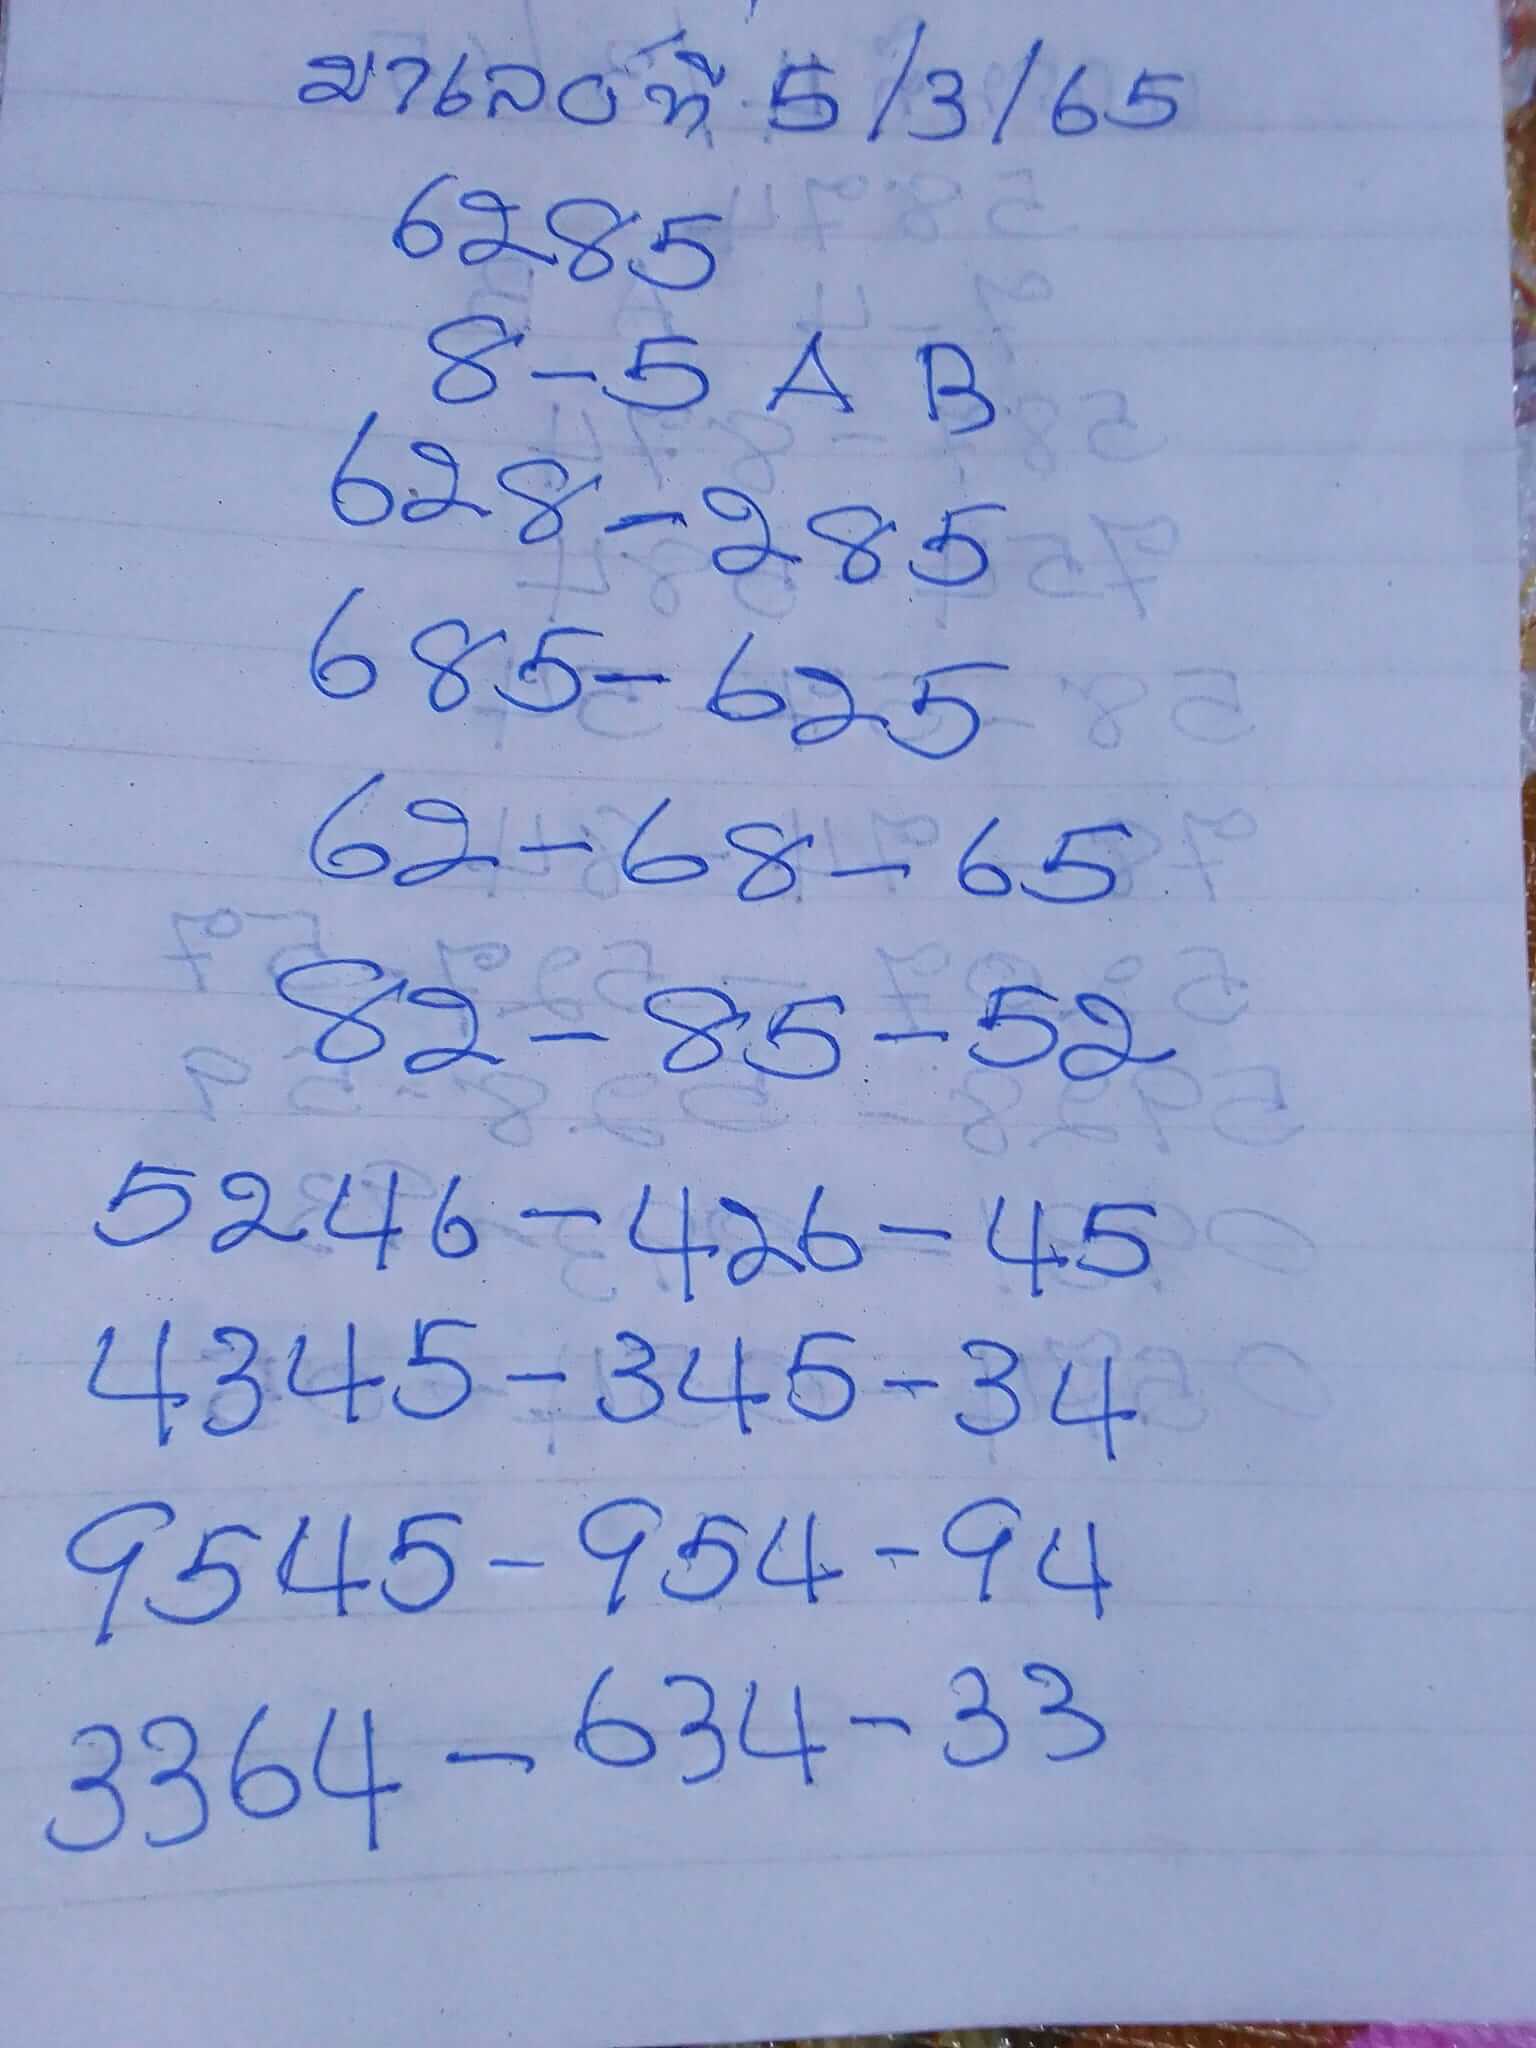 มาเลย์ที่ 5/3/65
6285
8-5 A B
628-285
685-625
62-68-65
82-85-52
5246-426-45
4345-345-34
9545-954-94
3364-634-33